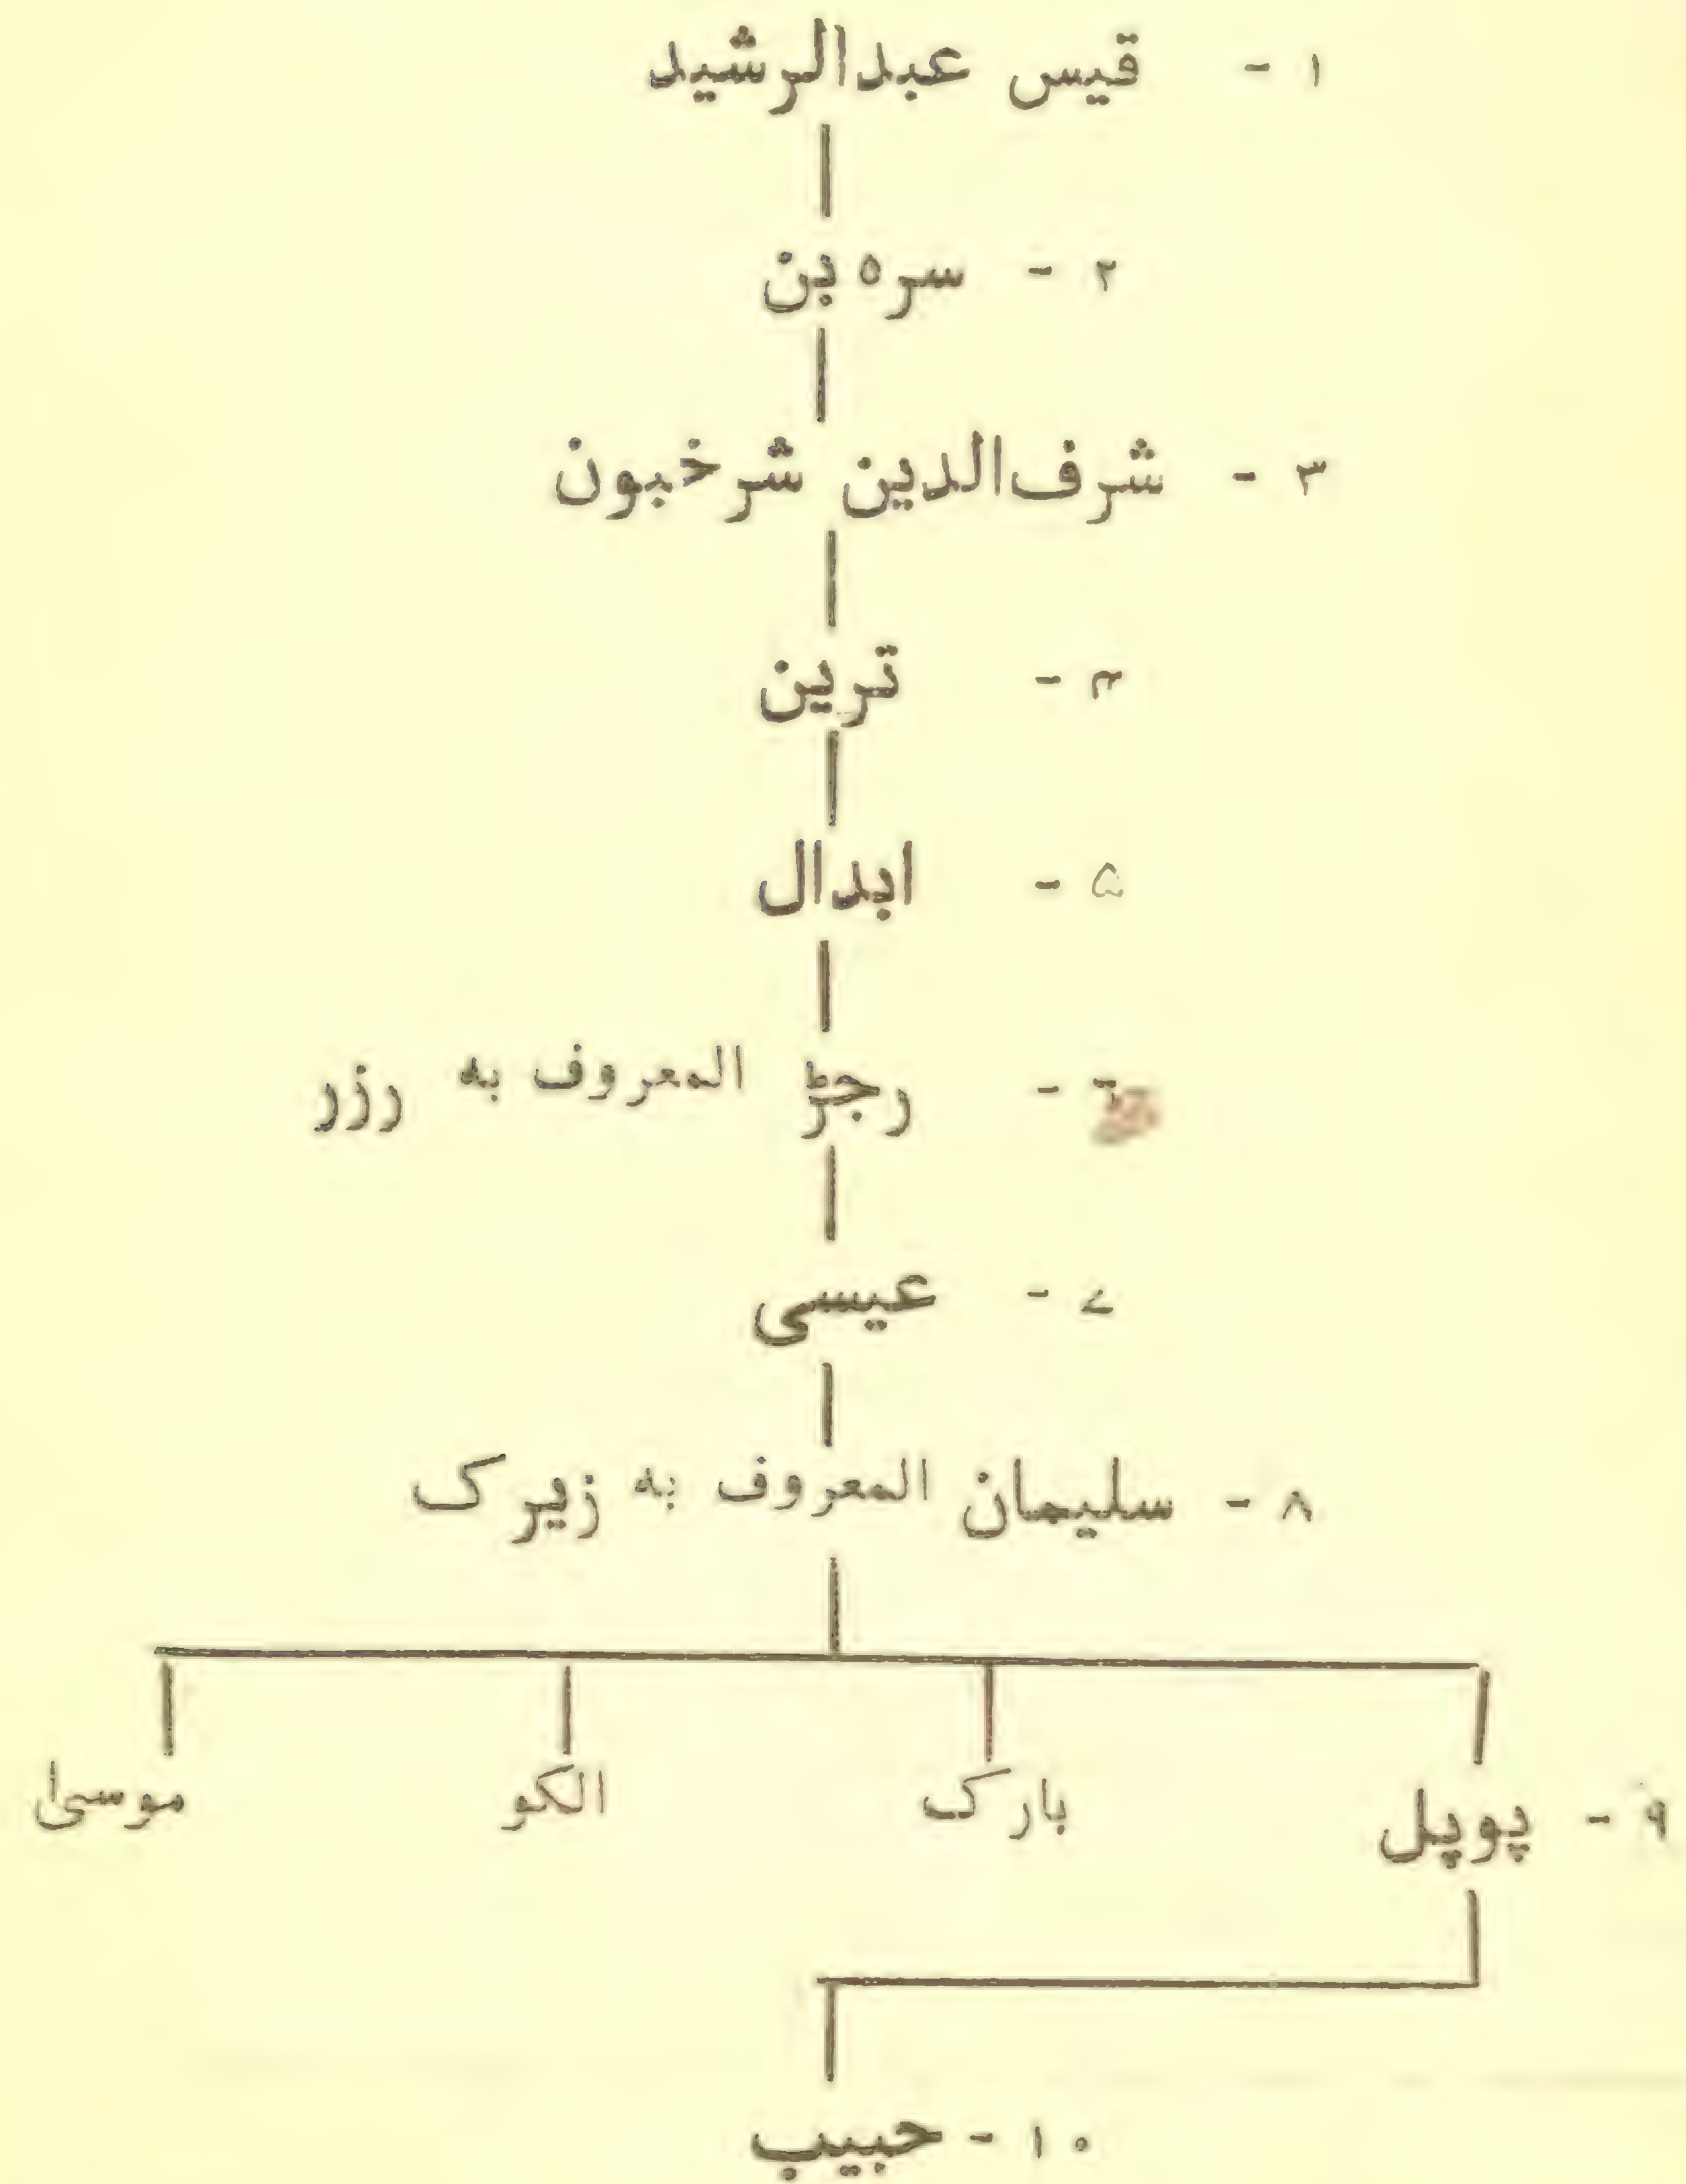 ۱ - قیس عبدالرشید
۲ - سره بن
۳ - شرف‌الدین شرخبون
۴ - ترین
۵ - ابدال
۶ - رجڑ المعروف به رزر
۷ - عیسی
۸ - سلیمان المعروف به زیرک
۹ - پوپل بارک الکو موسیٰ
۱۰ - حبیب